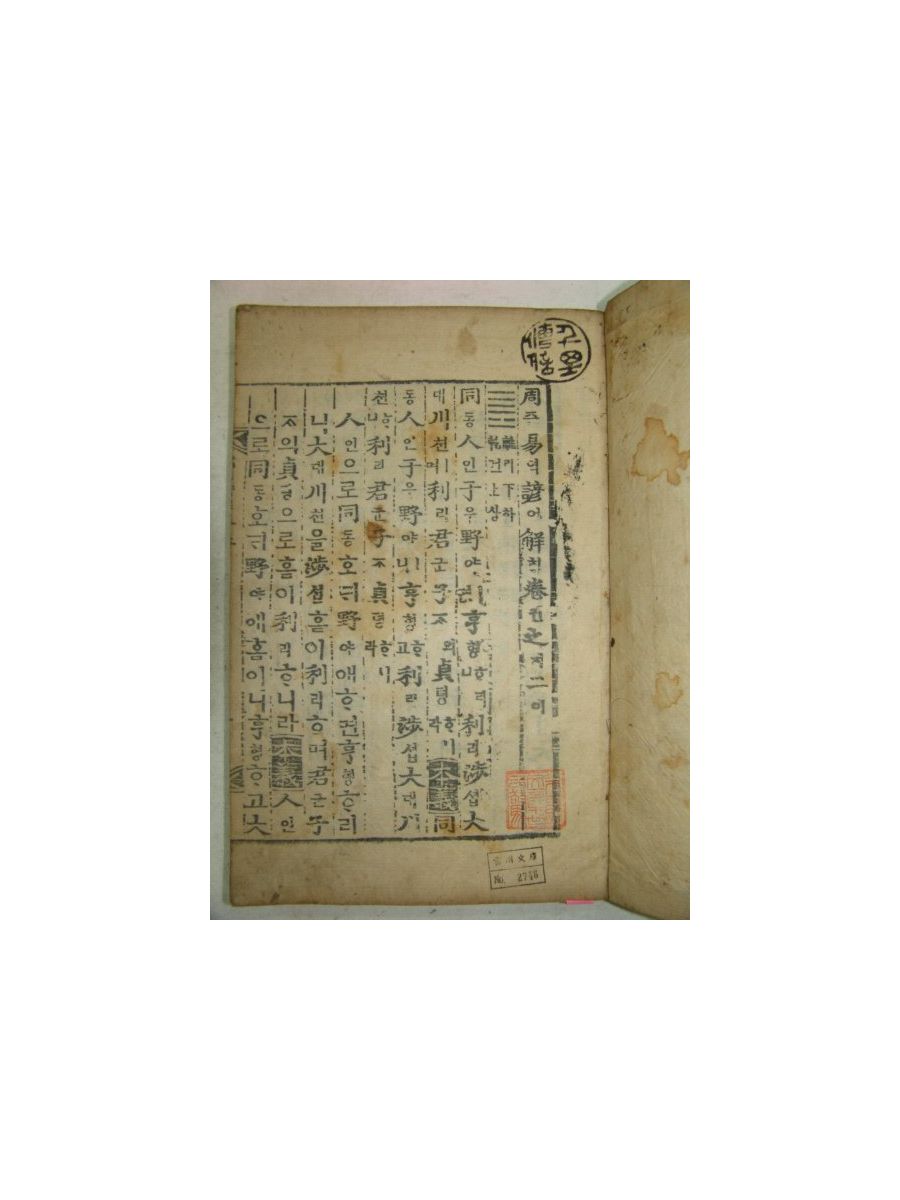 周쥬易역諺언解ᄒᆡ卷권五之지二이
離리下하
乾건上샹
同동人인于우野야ㅣ면亨형ᄒᆞ리니利리涉섭大
대川쳔이며利리君군子ᄌᆞ의貞뎡ᄒᆞ니라【本義】同
동人인于우野야ㅣ니亨형ᄒᆞ고利리涉섭大대川
쳔ᄒᆞ니利리君군子ᄌᆞ貞뎡ᄒᆞ니라
人인으로同동호ᄃᆡ野야애ᄒᆞ면亨형ᄒᆞ리
니大대川쳔을涉섭홈이利리ᄒᆞ며君군子
ᄌᆞ의貞뎡으로홈이利리ᄒᆞ니라【本義】人인
으로同동호ᄃᆡ野야애홈이니亨형ᄒᆞ고大
文庫
No. 2746